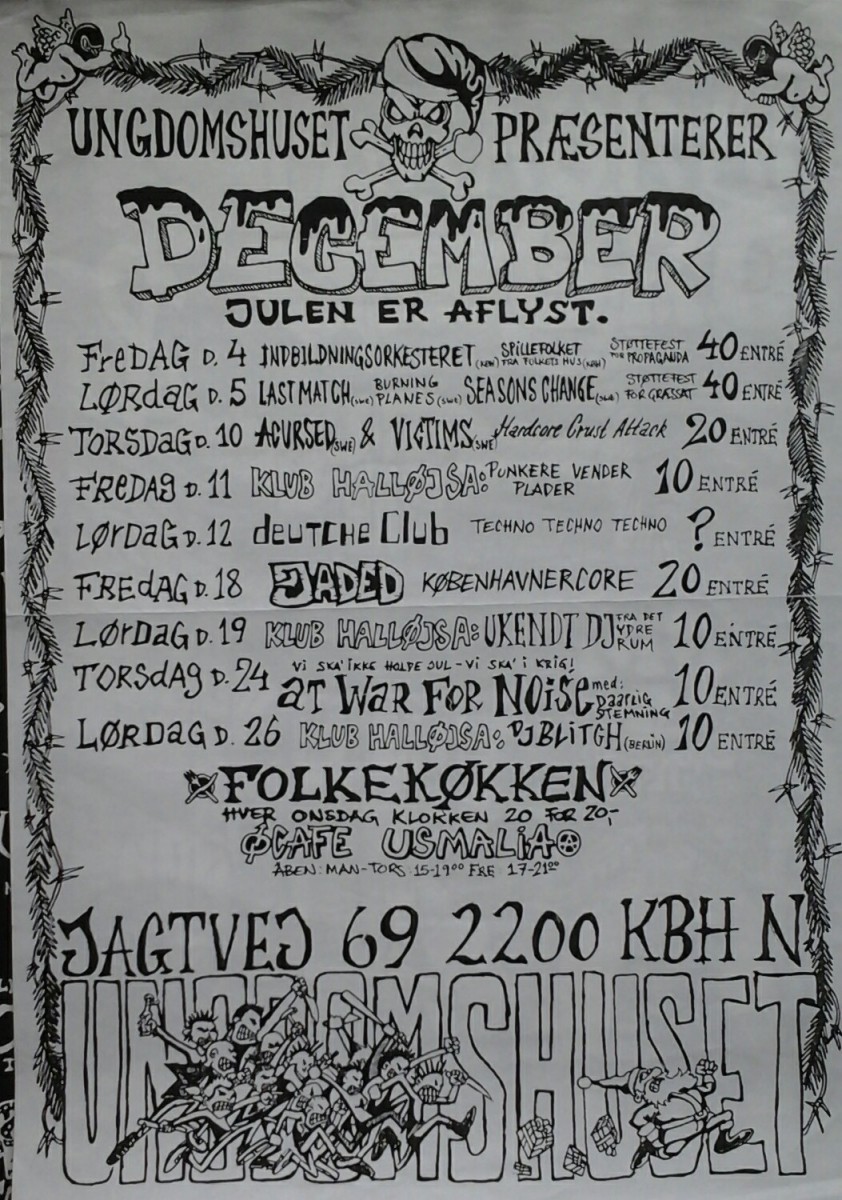 UNGDOMSHUSET PRÆSENTERER
DECEMBER
JULEN ER AFLYST.
FREDAG D. 4 INDBILDNINGSORKESTERET (KBH) SPILLEFOLKET FRA FOLKETS HUS (KBH) STØTTEFEST FOR PROPAGANDA 40 ENTRÉ
LØRDAG D. 5 LAST MATCH (SWE) BURNING PLANES (SWE) SEASONS CHANGE (SWE) STØTTEFEST FOR GRÆSSAT 40 ENTRÉ
TORSDAG D. 10 ACURSED (SWE) & VICTIMS (SWE) Hardcore Crust Attack 20 ENTRÉ
FREDAG D. 11 KLUB HALLØJSA: PUNKERE VENDER PLADER 10 ENTRÉ
LØRDAG D. 12 deutche Club TECHNO TECHNO TECHNO ? ENTRÉ
FREDAG D. 18 JADED KØBENHAVNERCORE 20 ENTRÉ
LØRDAG D. 19 KLUB HALLØJSA: UKENDT DJ FRA DET YDRE RUM 10 ENTRÉ
TORSDAG D. 24 VI SKA' IKKE HOLDE JUL - VI SKA' I KRIG! AT WAR FOR NOISE med: DAARLIG STEMNING 10 ENTRÉ
LØRDAG D. 26 KLUB HALLØJSA: DJ BLITCH (BERLIN) 10 ENTRÉ
FOLKEKØKKEN
HVER ONSDAG KLOKKEN 20 FOR 20,-
ØCAFE USMALIA
ÅBEN: MAN-TORS: 15-19⁰⁰ FRE 17-21⁰⁰
JAGTVEJ 69 2200 KBH N
UNGDOMSHUSET